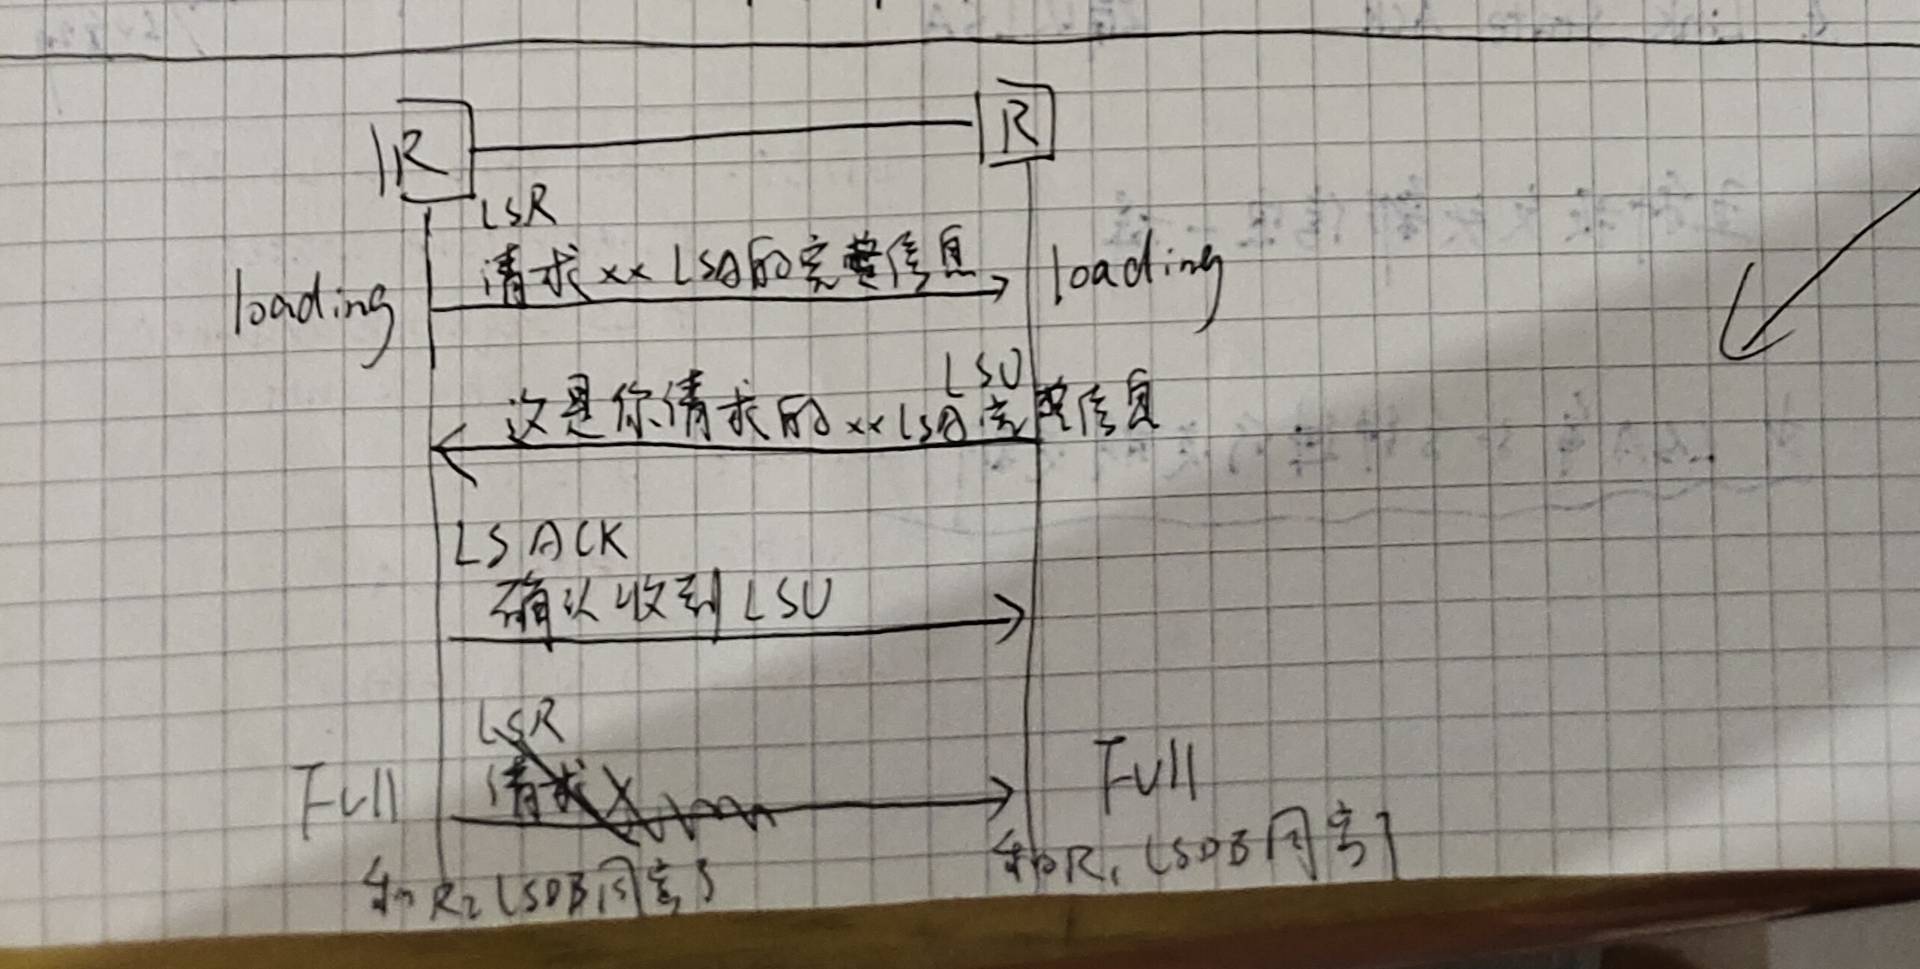 R
R
LSR
请求 xx LSA的完整信息
loading
loading
LSU
这是你请求的 xx LSA完整信息
LSACK
确认收到 LSU
LSR
请求
Full
Full
和R2 LSDB同步了
和R1 LSDB同步了